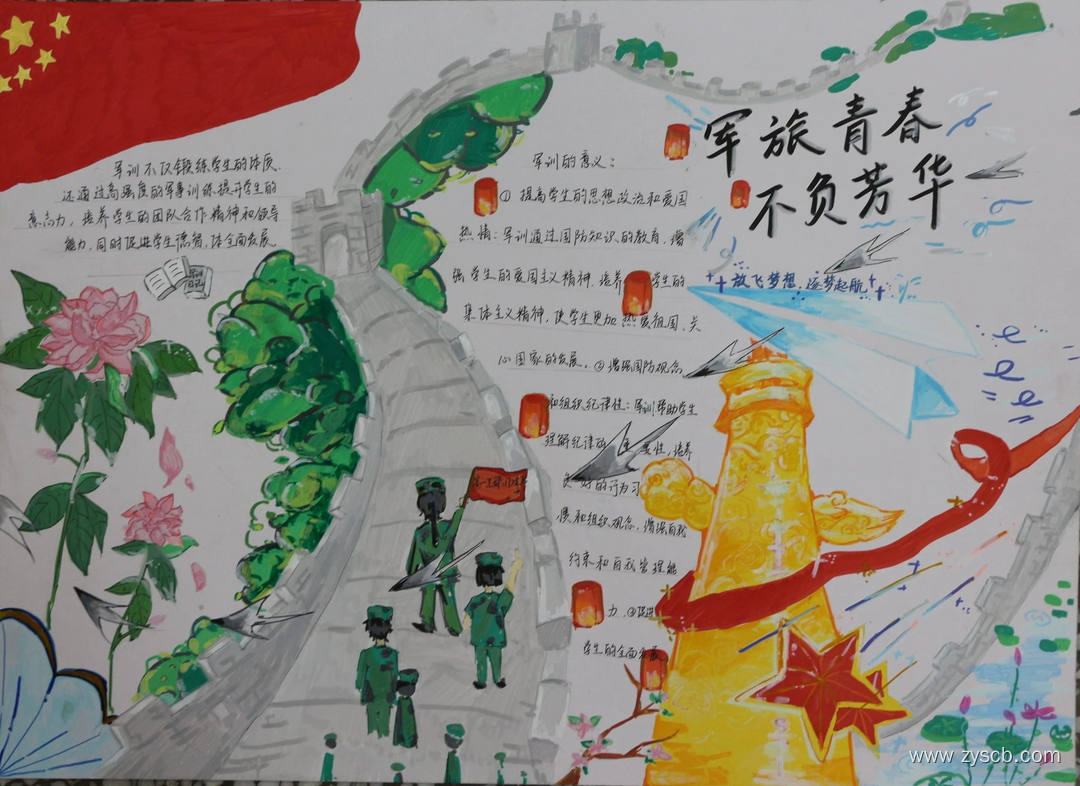 军旅青春
不负芳华
放飞梦想，逐梦起航
军训不仅锻练学生的体质，
还通过高强度的军事训练提升学生的
意志力，培养学生的团队合作精神和领导
能力，同时促进学生德智，体全面发展
军训
日记
军训的意义：
① 提高学生的思想政治和爱国
热情：军训通过国防知识的教育，增
强学生的爱国主义精神，培养学生的
集体主义精神，使学生更加热爱祖国，关
心国家的发展。②增强国防观念
和组织纪律性：军训帮助学生
理解纪律的重要性，培养
良好的行为习
惯和组织观念，增强自我
约束和自我管理能
力，③促进
学生的全面发展
www.zyscb.com